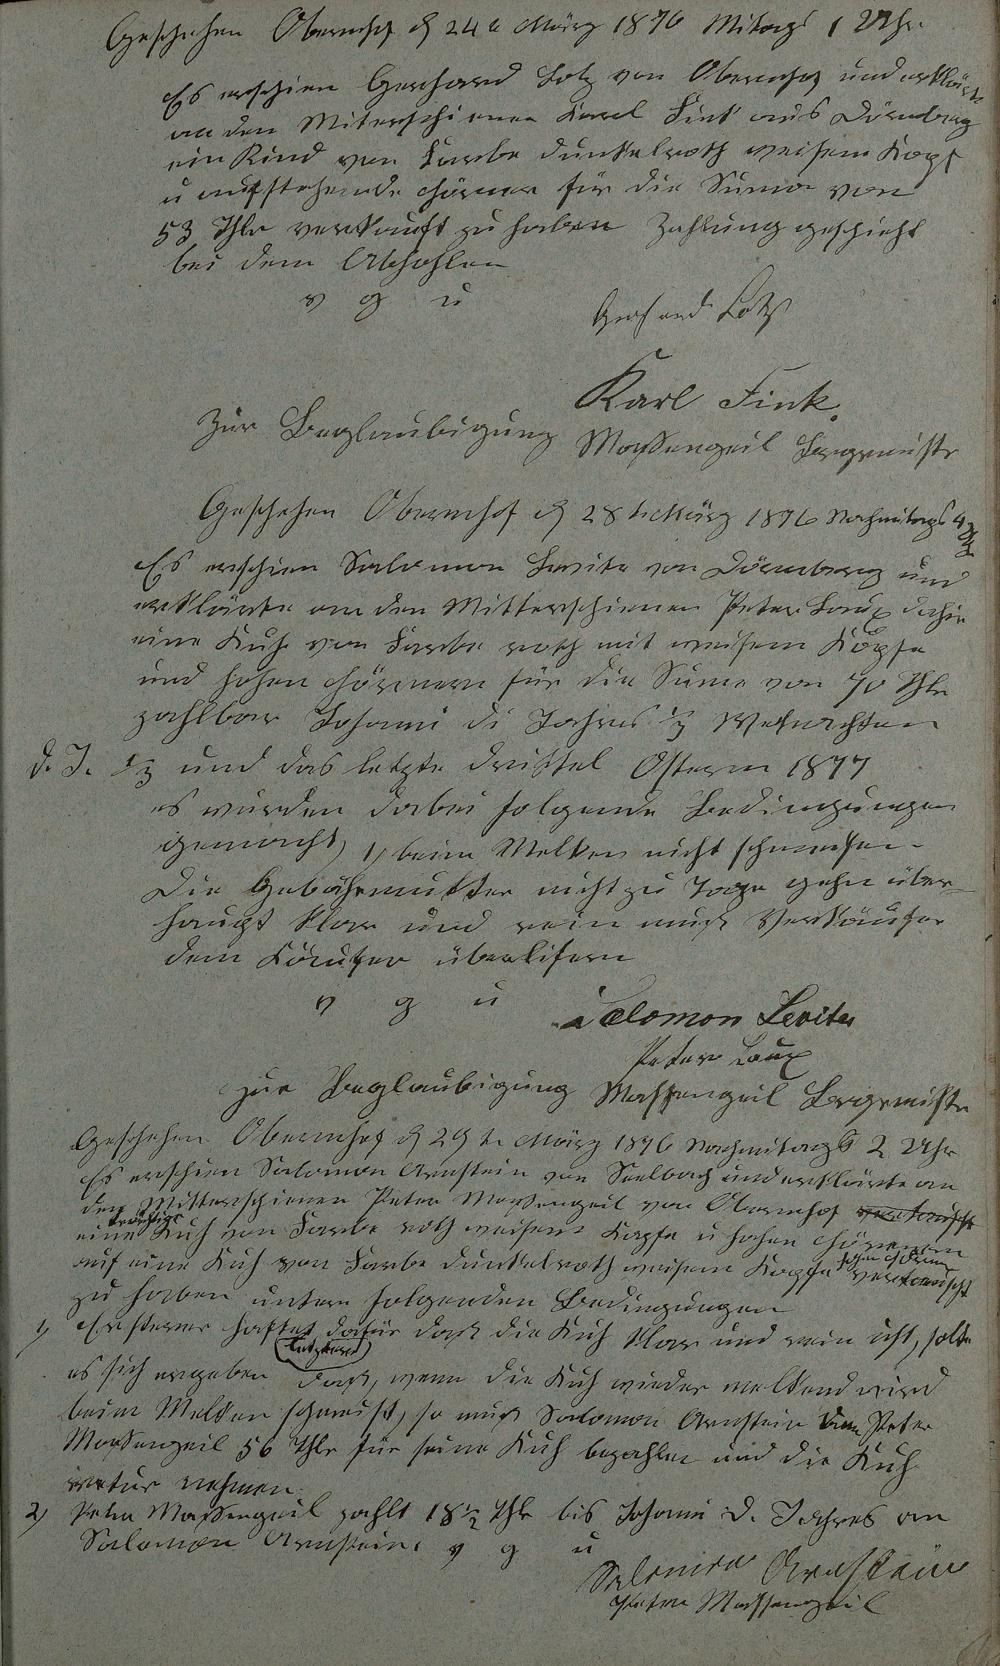 Geschehen Obernhof d 24t März 1876 Mitags 1 Uhr.
Es erschien Gerhard Lotz von Obernhof und erklärte
an den Miterschienen Karl Fink aus Dörnberg
ein Rind von Farbe dunkelroth weisem Kopf
u aufstehende Hörner für die Sume von
53 Thlr verkauft zu haben Zahlung geschieht
bei dem Abhohlen
v g u
Gerhard Lotz
Karl Fink.
Zur Beglaubigung Massengeil Bürgermeistr
Geschehen Obernhof d 28t März 1876 Nachmitags 4 Uhr
Es erschien Salomon Levita von Dörnberg und
erklärte an den Mitterschienen Peter Laux dahir
eine Kuh von Farbe roth mit weisem Kopfe
und hohen Hörnern für die Sume von 70 Thlr
zahlbar Johanni di Jahres 1/3 Weihnachten
d. J. 1/3 und das letzte drittel Ostern 1877
es wurden dabei folgende Bedingungen
gemacht, 1, beim Melken nicht schmeisen
Die Gebährmutter nicht zu Tage gehn über-
haupt klar und rein muß Verkäufer
dem Käufer überlifern
v g u
Salomon Levita
Peter Laux
Zur Beglaubigung Massengeil Bürgermeistr
Geschehen Obernhof d 29 t März 1876 Nachmitags 2 Uhr
Es erschien Salomon Arnstein von Seelbach und erklärte an
den Mitterschienen Peter Massengeil von Obernhof vertauscht
trächtige
eine Kuh von Farbe roth weisem Kopfe u hohen Hörnern
auf eine Kuh von Farbe dunkelroth weisem Kopfe hohen Hörner vertauscht
zu haben untern folgenden Bedingungen
1, Ersterer haftet dafür daß die Kuh klar und rein ist, solte
letztere
es sich ergeben daß, wenn die Kuh wieder melkend wird
beim Melken schmeist, so muß Salomon Arnstein dem Peter
Massengeil 56 Thlr für seine Kuh bezahlen und die Kuh
retur nehmen.
2, Peter Massengeil zahlt 18 1/2 Thlr bis Johanni d. Jahres an
Salomon Arnstein. v g u
Salomon Arnstein
Peter Massengeil